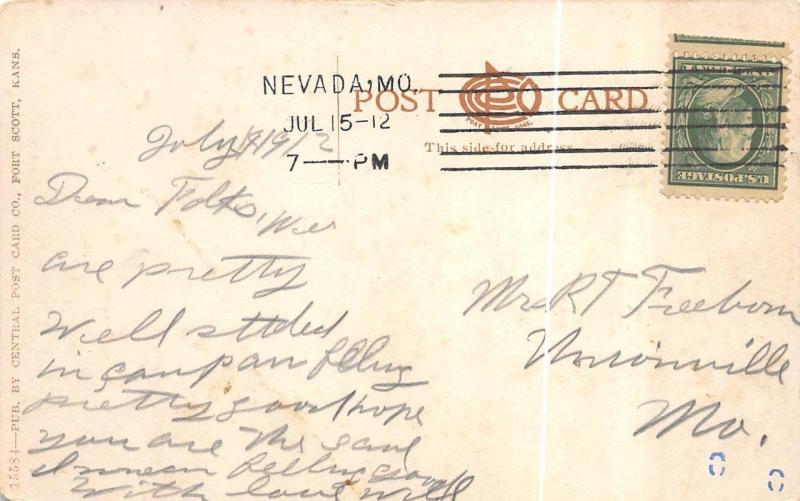 15584—PUB. BY CENTRAL POST CARD CO., FORT SCOTT, KANS.
NEVADA, MO.
JUL 15-12
7 — PM
POST CARD
This side for address
U.S. POSTAGE
July 1912
Dear Folks, We
are pretty
Well settled
in camp am feling
pretty good hope
you are the same
I mean felling good
With love Will
Mr R T Freeborn
Unionville
Mo.